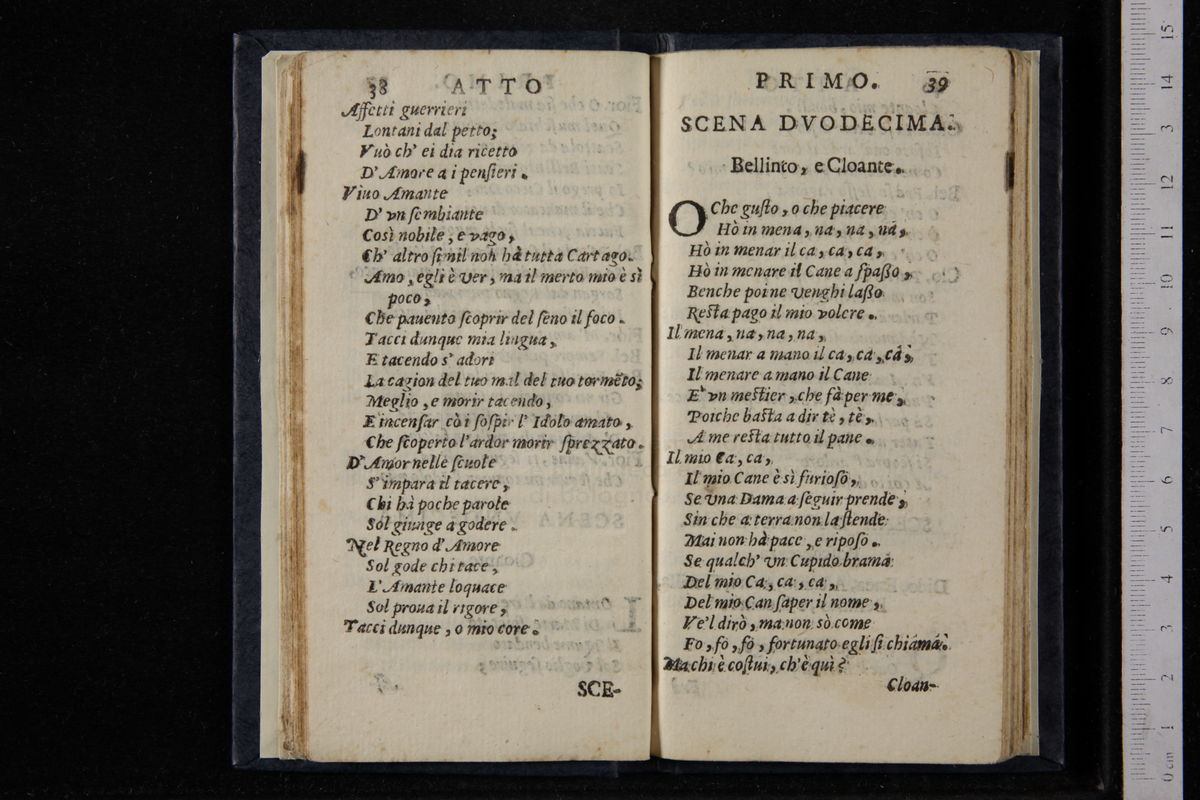 38 ATTO
Affetti guerrieri
Lontani dal petto;
Vuò ch' ei dia ricetto
D' Amore a i pensieri.
Viuo Amante
D' vn sembiante
Così nobile, e vago,
Ch' altro simil non hà tutta Cartago.
Amo, egli è ver, ma il merto mio è sì
poco,
Che pauento scoprir del seno il foco.
Tacci dunque mia lingua,
E tacendo s' adori
La cagion del tuo mal del tuo tormẽto;
Meglio, e morir tacendo,
E incensar cò i sospir l' Idolo amato,
Che scoperto l'ardor morir sprezzato.
D' Amor nelle scuole
S' impara il tacere,
Chi hà poche parole
Sol giunge a godere.
Nel Regno d' Amore
Sol gode chi tace,
L' Amante loquace
Sol proua il rigore,
Tacci dunque, o mio core.
SCE-
PRIMO. 39
SCENA DVODECIMA.
Bellinto, e Cloante.
O Che gusto, o che piacere
Hò in mena, na, na, na,
Hò in menar il ca, ca, ca,
Hò in menare il Cane a spasso,
Benche poi ne venghi lasso
Resta pago il mio volere.
Il mena, na, na, na,
Il menar a mano il ca, ca, ca,
Il menare a mano il Cane
E' vn mestier, che fà per me,
Poiche basta a dir tè, tè,
A me resta tutto il pane.
Il mio Ca, ca,
Il mio Cane è sì furioso,
Se vna Dama a seguir prende,
Sin che a terra non la stende
Mai non hà pace, e riposo.
Se qualch' vn Cupido brama
Del mio Ca, ca, ca,
Del mio Can saper il nome,
Ve'l dirò, ma non sò come
Fo, fo, fo, fortunato egli si chiama.
Ma chi è costui, ch'è quì?
Cloan-
0 cm 1 2 3 4 5 6 7 8 9 10 11 12 13 14 15